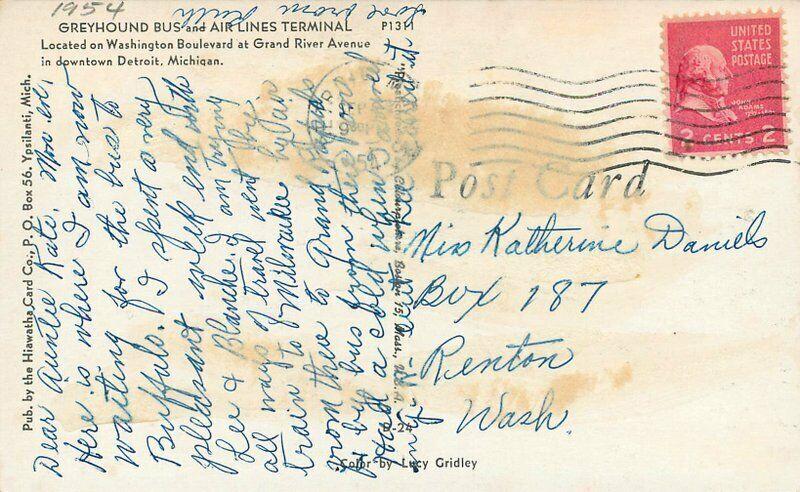 1954
GREYHOUND BUS and AIR LINES TERMINAL P1311
Located on Washington Boulevard at Grand River Avenue
in downtown Detroit, Michigan.
Pub. by the Hiawatha Card Co., P. O. Box 56. Ypsilanti, Mich.
Dear Auntie Kate, Mon en,
Here is where I am now
waiting for the bus to
Buffalo. I spent a very
pleasant week end with
Lee & Blanche. I am trying
all ways of travel went by
train to Milwaukee by air
from there to Grand Rapids
by bus from there
Had a cold when
Love from
UNITED
STATES
POSTAGE
JOHN ADAMS
2 CENTS 2
Post Card
Miss Katherine Daniels
Box 187
Renton
Wash.
Boston 15, Mass., U. S. A.
D-24
Color by Lucy Gridley